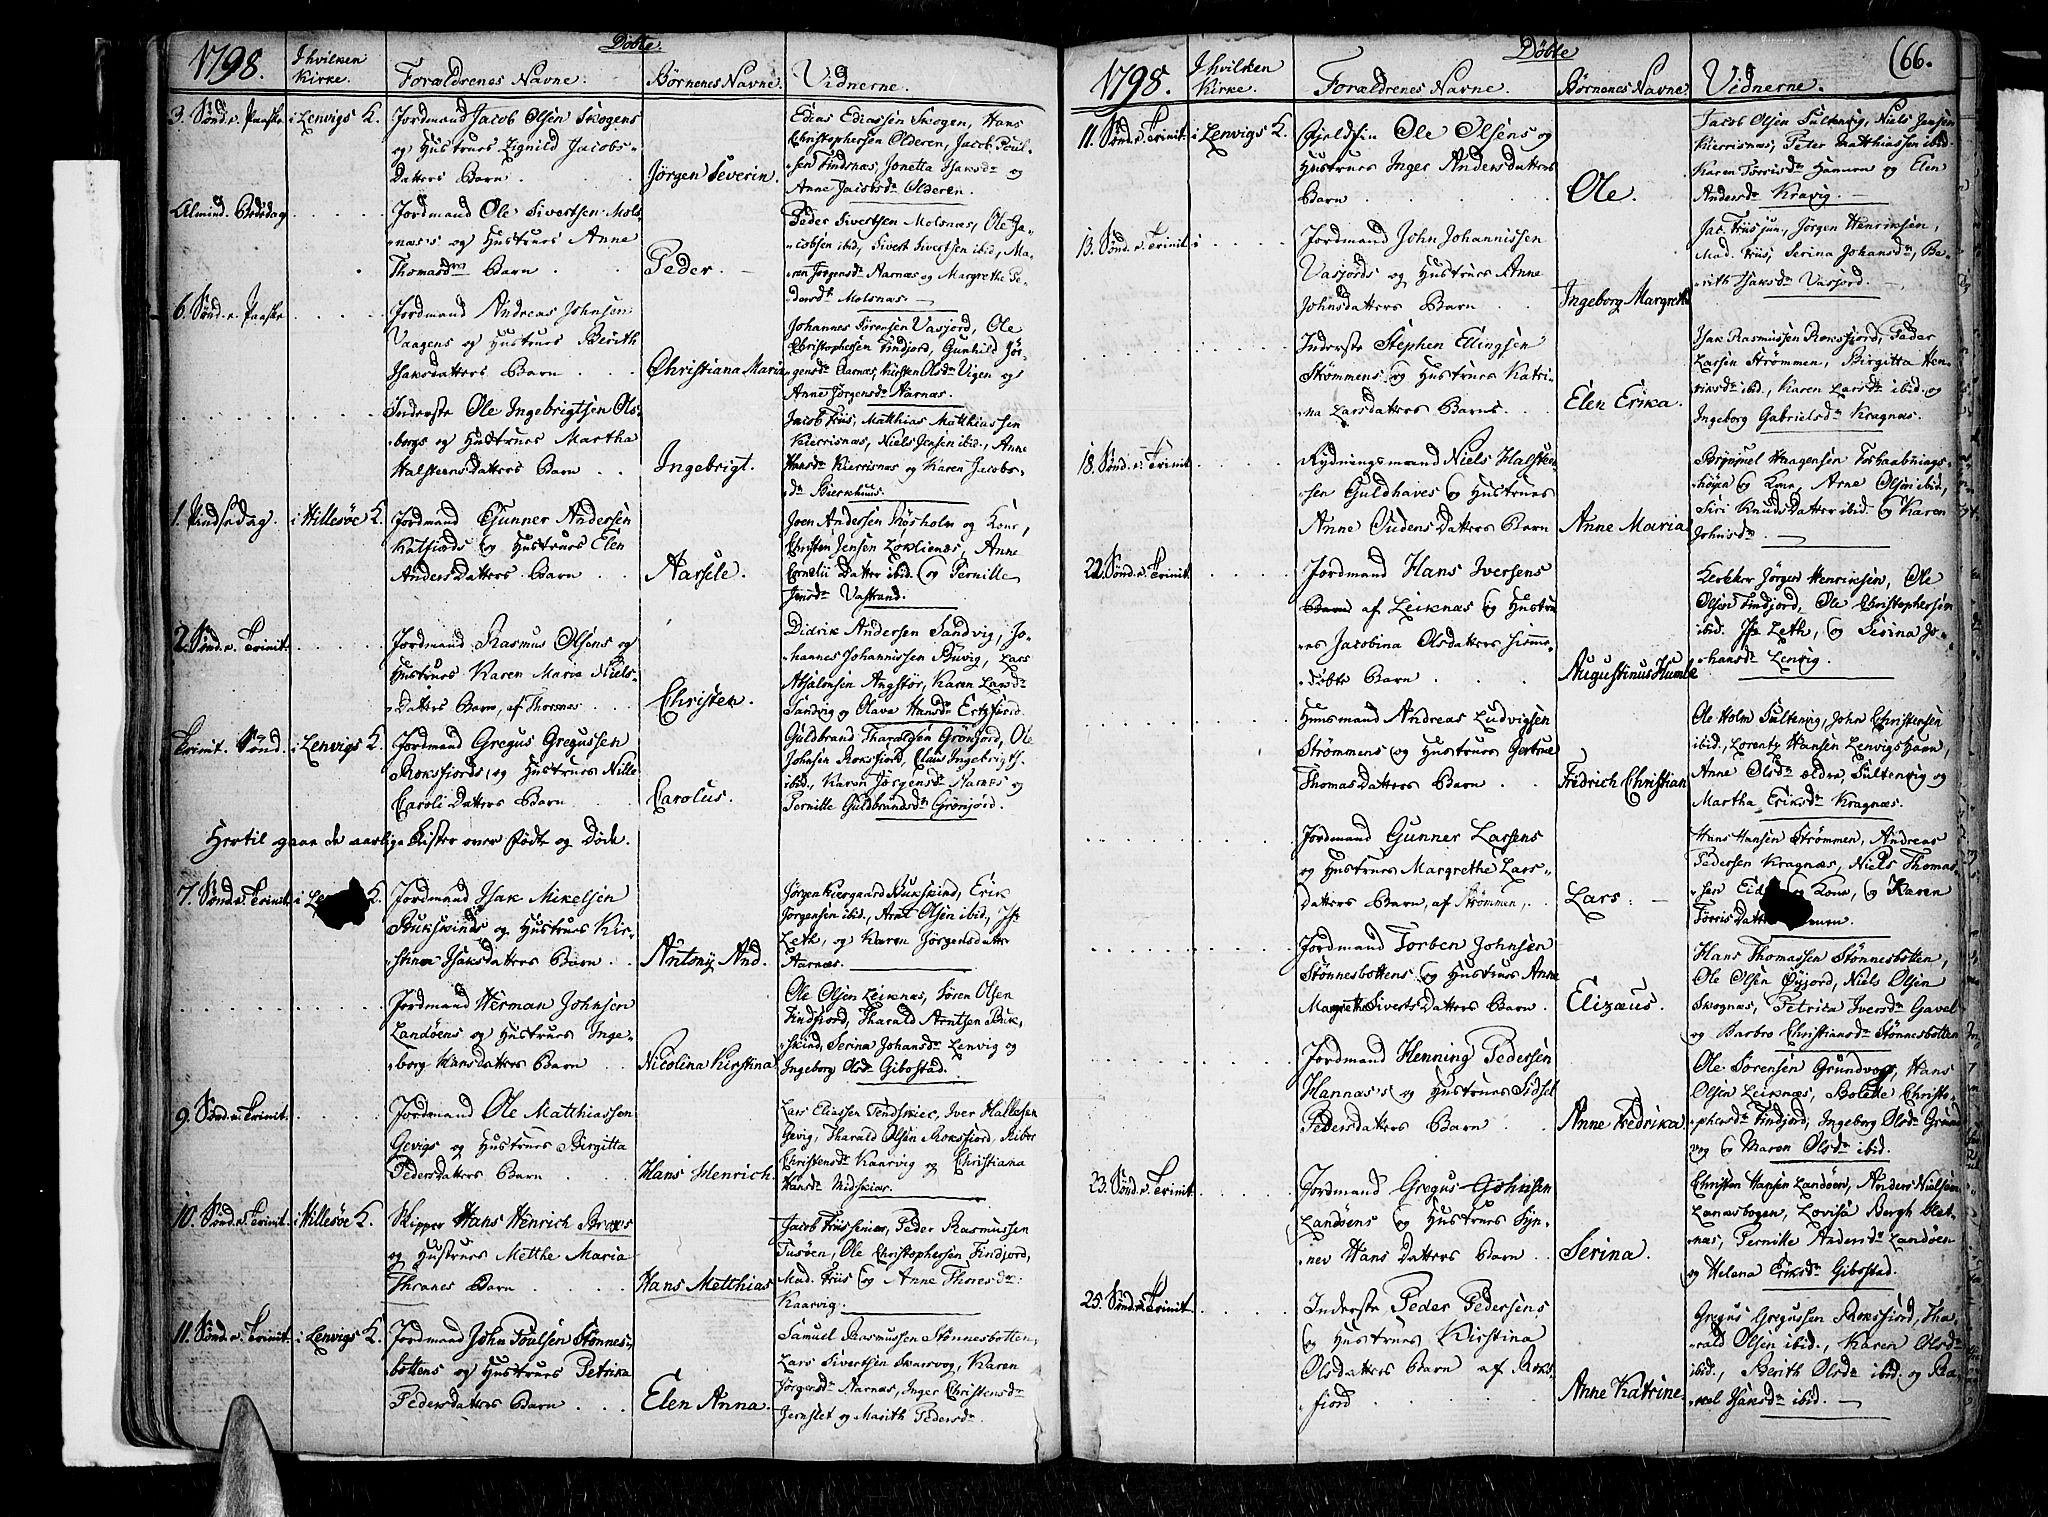 1798.
Döbte.
I hvilken Kirke.
Forældrenes Navne.
Börnenes Navne.
Vidnerne.
3. Sönd. e. Paaske
i Lenvigs K.
Jordmand Jacob Olsen Skogens
og Hustrues Zignild Jacobs-
Datters Barn
Jörgen Severin.
Edias Ediassen Skogen, Hans
Christophersen Olderen, Jacob Poul-
sen Findsnæs, Jonetta Isaksdr. og
Anne Jacobsdr. Olderen.
Almind. Bededag
Jordmand Ole Sivertsen Mols-
næs's og Hustrues Anne
Thomasdrs Barn
Peder.
Peder Sivertsen Molsnæs, Ole Ja-
cobsen ibid, Sivert Sivertsen ibid, Ma-
ren Jörgensdr. Aarnæs og Margrethe Pe-
dersdr. Molsnæs.
6. Sönd. e. Paaske
Jordmand Andreas Johnsen
Vaagens og Hustrues Berith
Isaksdatters Barn
Christiana Maria
Johannes Sörensen Vasjord, Ole
Christophersen Findjord, Gunhild Jör-
gensdr. Aarnæs, Kirsten Olsdr. Vigen og
Anne Jörgensdr. Aarnæs.
Inderste Ole Ingebrigtsen Ols-
borgs og Hustrues Martha
Halstensdatters Barn
Ingebrigt.
Jacob Friis, Matthias Matthiassen
Kierrisnæs, Niels Jensen ibid., Anne
Hansdr. Kierrisnæs og Karen Jacobs-
dr. Bierkhuus.
1. Pindsedag.
i Hillesöe K.
Jordmand Gunner Andersen
Katfiords og Hustrues Elen
Anders Datters Barn
Aarsele.
Joen Andersen Røsholm og Kone,
Christen Jensen Løklienæs, Anne
Cornelii Datter ibid. og Pernille
Jensdr. Vastrand.
2. Sönd. e. Trinit.
Jordmand Rasmus Olsens og
Hustrues Karen Maria Niels-
Datters Barn, af Thorsnæs
Christen.
Didrik Andersen Sandvig, Jo-
hannes Johannissen Buvig, Lars
Absalonsen Angstör, Karen Larsdr.
Sandvig og Olava Hansdr. Ertzfiord.
Trinit. Sönd.
i Lenvigs K.
Jordmand Gregus Gregussen
Roksfiords, og Hustrues Nille
Caroli Datters Barn
Carolus.
Guldbrand Tharaldsen Grönjord, Ole
Johnsen Roksfiord, Claus Ingebrigts.
ibid., Karen Jörgensdr. Aarnæs og
Pernille Guldbrandsdr. Grönjord.
Hertil gaae de aarlige Lister over Födte og Döde.
7. Sönd. e. Trinit.
i K.
Jordmand Isak Mikelsen
Bukskinds og Hustrues Kir-
stina Isaksdatters Barn
Antony And.
Jörgen Kiergaard Bukskind, Erik
Jörgensen ibid, Arnt Olsen ibid,
Leth, og Karen Jörgensdatter
Aarnæs.
Jordmand Herman Johnsen
Landöens og Hustrues Inge-
borg Hansdatters Barn
Nicolina Kirstina
Ole Olsen Leiknæs, Sören Olsen
Findfjord, Tharald Arntsen Buk-
skind, Serina Johansdr. Lenvig og
Ingeborg Olsdr. Gibostad.
9. Sönd. e. Trinit.
Jordmand Ole Matthiassen
Gevigs og Hustrues Birgitta
Pedersdatters Barn
Hans Henrich.
Lars Eliassen Tendskiær, Iver Hallesen
Gevig, Tharald Olsen Roksfiord,
Christensdr. Kaarvig og Christiana
Hansdr. Midskiær.
10. Sönd. e. Trinit.
i Hillesöe K.
Skipper Hans Henrich Broxs
og Hustrues Metthe Maria
Thranes Barn
Hans Matthias
Jacob Peder Rasmussen
Tusöen, Ole Christophersen Findjord,
Mad. Friis og Anne Thoresdr.
Kaarvig.
11. Sönd. e. Trinit.
i Lenvigs K.
Jordmand John Poulsen Stönnes-
bottens og Hustrues Petrika
Pedersdatters Barn
Elen Anna.
Samuel Rasmussen Stönnesbotten,
Lars Sivertsen Skarvog, Karen
Jörgensdr. Aarnæs, Inger Christensdr.
Jernslet og Marith Pedersdr.
1798.
Döbte
66.
I hvilken Kirke.
Forældrenes Navne.
Börnenes Navne
Vidnerne.
11. Sönd. e. Trinit.
i Lenvigs K.
Fjeldfin Ole Olsens og
Hustrues Inger Andersdatters
Barn
Ole.
Jacob Olsen Sultenvig, Niels Jensen
Kierrisnæs, Peter Matthiassen ibid.
Karen Torrisdr. Hannen og Elen
Andersdr. Kravig.
13. Sönd. e. Trinit.
i
Jordmand John Johannissen
Vasjords og Hustrues Anne
Johnsdatters Barn
Ingeborg Margrethe
Jac. Friis jun, Jörgen Henriksen,
Mad. Friis, Serina Johansdr., Be-
rith Isaksdr. Vasjord.
Inderste Stephen Ellingsen
Strömmens og Hustrues Katri-
na Larsdatters Barns
Elen Erika.
Isak Rasmussen Roksfiord, Peder
Larsen Strömmen, Birgitta Hen-
riksdr. ibid., Karen Larsdr. ibid. og
Ingeborg Gabrielsdr. Kragnæs.
18. Sönd. e. Trinit.
Rydningsmand Niels Halsten-
sen Guldhaves og Hustrues
Anne Oudens Datters Barn
Anne Maria
Brynmel Haagensen Forhaabnings-
höjen og Kone, Arne Olsen ibid,
Siri Knuds Datter ibid. og Karen
Johnsdr.
22. Sönd. e. Trinit.
Jordmand Hans Iversens
Barn af Leiknæs og Hustru
es Jacobina Olsdatters hiemme
döbte Barn
Augustinus Humle
Kirkesr Jörgen Henriksen, Ole
Olsen Findjord, Ole Christophersen
ibid. Leth, og Serina Jo-
hansdr. Lenvig.
Huusmand Andreas Ludvigsen
Strömmens og Hustrues Gertrue
Thomas Datters Barn
Fredrich Christian
Ole Holm Sultenvig, John Christensen
ibid., Lorentz Hansen Lenvigshavn,
Anne Olsdr. ældre, Sultenvig og
Martha Eriksdr. Kragnæs.
Jordmand Gunner Larsens
og Hustrues Margrethe Lars-
datters Barn, af Strömmen,
Lars.
Hans Hansen Strömmen, Andreas
Pedersen Kragnæs, Niels Thomas-
sen og Kone, og Karen
Torris Datter
Jordmand Torben Johnsen
Stönnesbottens og Hustrues Anne
Margrethe Siverts Datters Barn
Elizæus.
Hans Thomassen Stönnesbotten,
Ole Olsen Øyjord, Niels Olsen
Skognæs, Petrica Iversdr. Gavel
og Barbro Christiansdr. Stönnesbotten
Jordmand Henning Pedersen
Hannæs's og Hustrues Sidsel
Pedersdatters Barn
Anne Fredrika.
Ole Sörensen Grundvog, Hans
Olsen Leiknæs, Bolette Christo-
phersdr. Findjord, Ingeborg Olsdr. Grund
vog og Maren Olsdr. ibid.
23. Sönd. e. Trinit.
Jordmand Gregus Johnsen
Landöens og Hustrues Syn-
nev Hans Datters Barn
Serina.
Christen Hansen Landöen, Anders Nielsen
Lanæsbogen, Lovisa Bergh Klet-
næs, Pernike Andersdr. Landöen
og Helena Eriksdr. Gibostad.
25. Sönd. e. Trinit.
Inderste Peder Pedersens
og Hustrues Kirstina
Olsdatters Barn af Roks-
fiord
Anne Katrine.
Gregus Gregussen Roksfiord, Tha-
rald Olsen ibid., Karen Olsdr.
ibid., Berith Olsdr. ibid. og Ra-
kel Isaksdr. ibid.